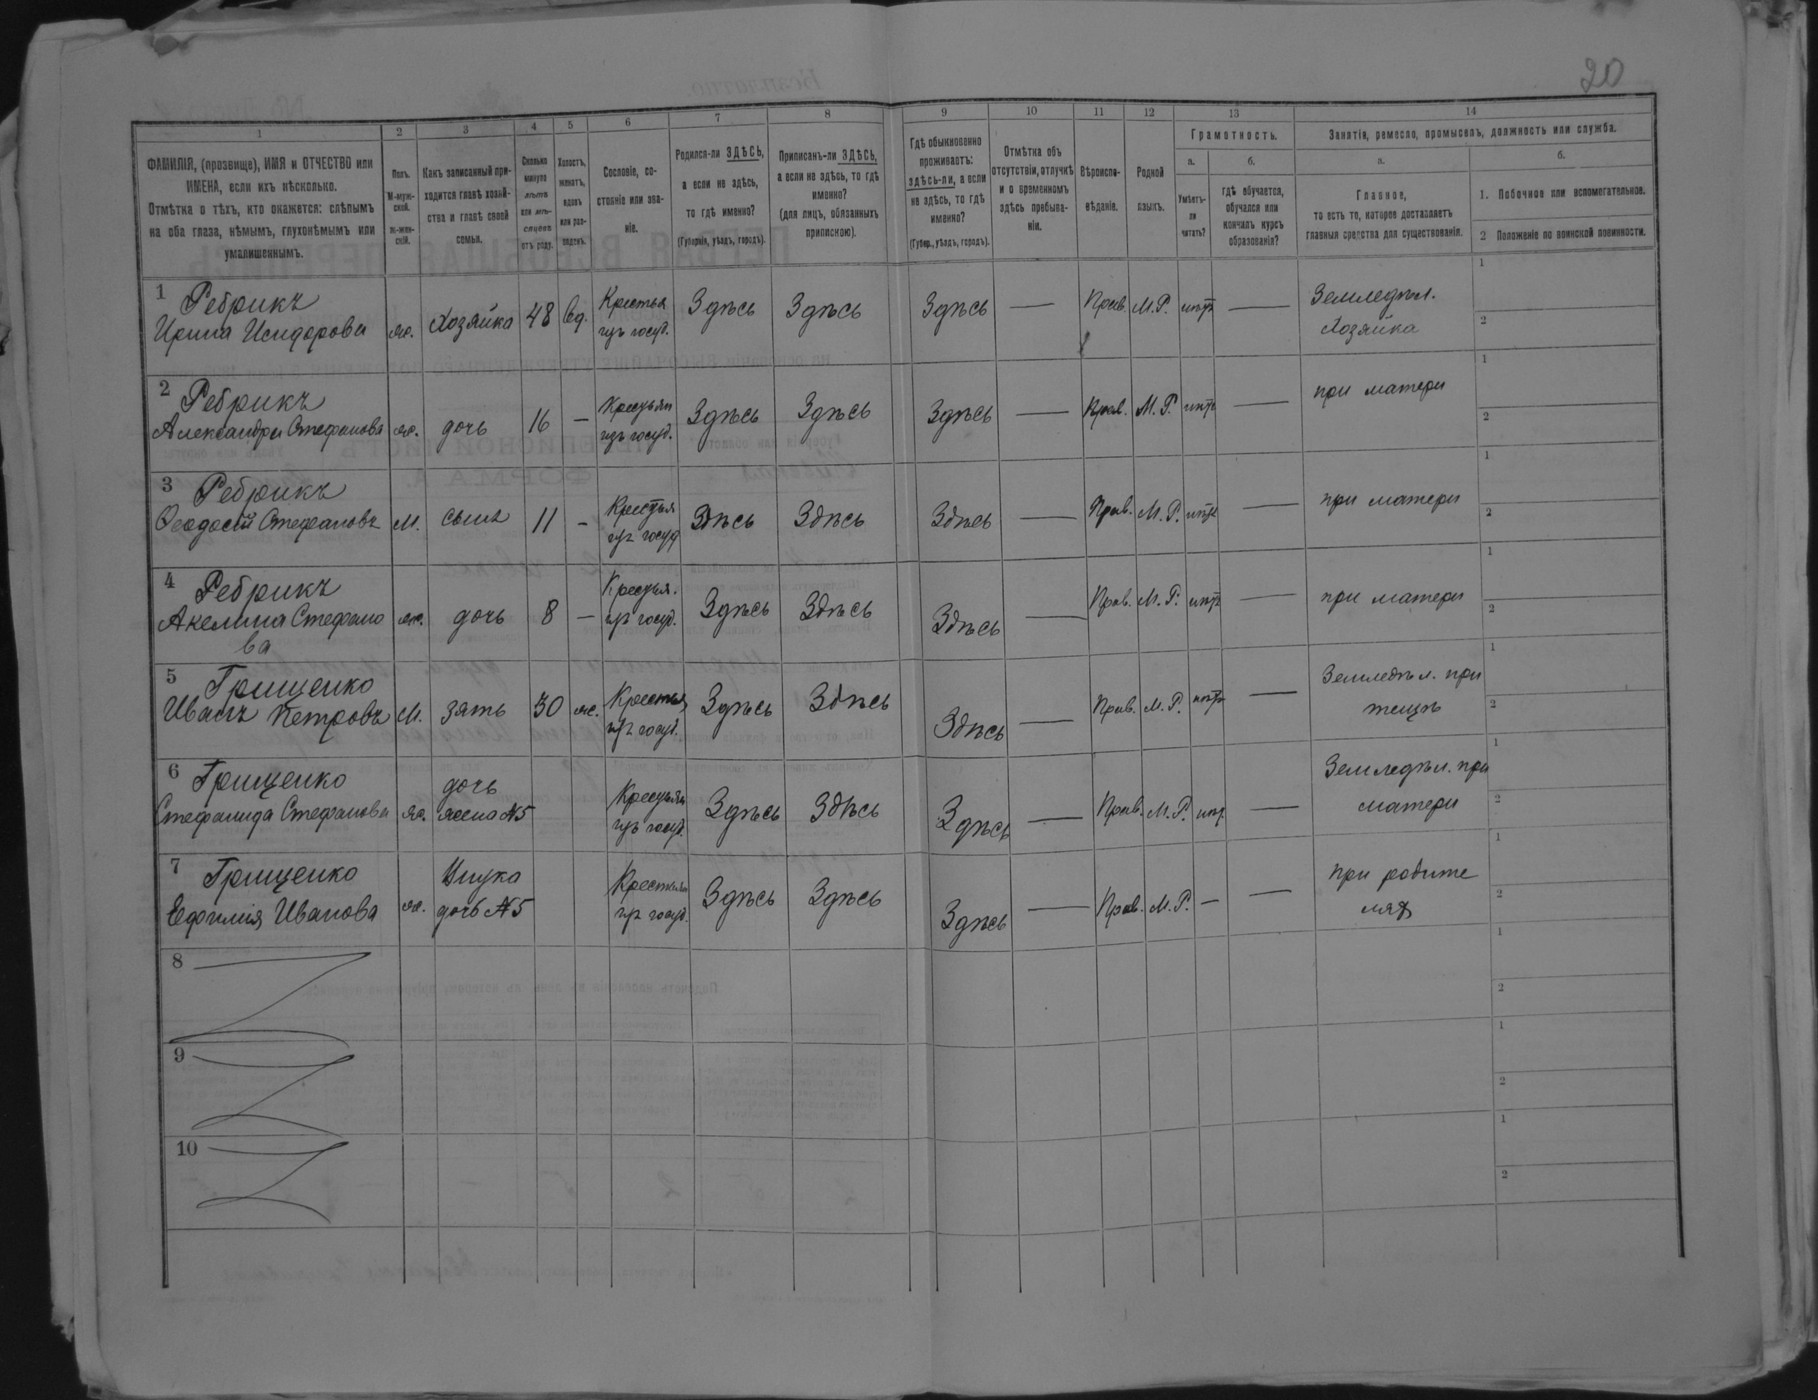 20
1 2 3 4 5 6 7 8 9 10 11 12 13 14
ФАМИЛІЯ, (прозвище), ИМЯ и ОТЧЕСТВО или
ИМЕНА, если ихъ нѣсколько.
Отмѣтка о тѣхъ, кто окажется: слѣпымъ
на оба глаза, нѣмымъ, глухонѣмымъ или
умалишеннымъ.
Полъ.
М-муж-
ской.
ж-жен-
скій.
Какъ записанный при-
ходится главѣ хозяй-
ства и главѣ своей
семьи.
Сколько
минуло
лѣтъ
или мѣ-
сяцевъ
отъ роду.
Холостъ,
женатъ,
вдовъ
или раз-
веденъ.
Сословіе, со-
стояніе или зва-
ніе.
Родился-ли ЗДѢСЬ,
а если не здѣсь,
то гдѣ именно?
(Губернія, уѣздъ, городъ).
Приписанъ-ли ЗДѢСЬ,
а если не здѣсь, то гдѣ
именно?
(для лицъ, обязанныхъ
припискою).
Гдѣ обыкновенно
проживаетъ:
здѣсь-ли, а если
не здѣсь, то гдѣ
именно?
(Губер., уѣздъ, городъ).
Отмѣтка объ
отсутствіи, отлучкѣ
и о временномъ
здѣсь пребыва-
ніи.
Вѣроиспо-
вѣданіе.
Родной
языкъ.
Грамотность.
а.
Умѣетъ-
ли
читать?
б.
гдѣ обучается,
обучался или
кончилъ курсъ
образованія?
Занятія, ремесло, промыселъ, должность или служба.
а.
Главное,
то есть то, которое доставляетъ
главныя средства для существованія.
б.
1. Побочное или вспомогательное.
2 Положеніе по воинской повинности.
1 Ребрикъ
Ирина Исидорова ж. Хозяйка 48 вд. Крестья изъ госуд. Здѣсь Здѣсь Здѣсь — Прав. М.Р. нѣтъ — Земледѣл. Хозяйка 1 2
2 Ребрикъ
Александра Стефанова ж. дочь 16 — Крестьян изъ госуд. Здѣсь Здѣсь Здѣсь — Прав. М.Р. нѣтъ — при матери 1 2
3 Ребрикъ
Ѳеодосій Стефановъ М. сынъ 11 — Крестья изъ госуд Здѣсь Здѣсь Здѣсь — Прав. М.Р. нѣтъ — при матери 1 2
4 Ребрикъ
Акелина Стефано
ва ж. дочь 8 — Крестья. изъ госуд. Здѣсь Здѣсь Здѣсь — Прав. М.Р. нѣтъ — при матери 1 2
5 Грищенко
Иванъ Петровъ М. зять 30 ж. Крестья изъ госуд. Здѣсь Здѣсь Здѣсь — Прав. М.Р. нѣтъ — Земледѣл. при тещѣ 1 2
6 Грищенко
Стефанида Стефанова ж. дочь жена №5 Крестьян изъ госуд. Здѣсь Здѣсь Здѣсь — Прав. М.Р. нѣт. — Земледѣл. при матери 1 2
7 Грищенко
Евфимія Иванова ж. Внука дочь №5 Крестьян изъ госуд. Здѣсь Здѣсь Здѣсь — Прав. М.Р. — — при родите лях 1 2
8 1 2
9 1 2
10 1 2